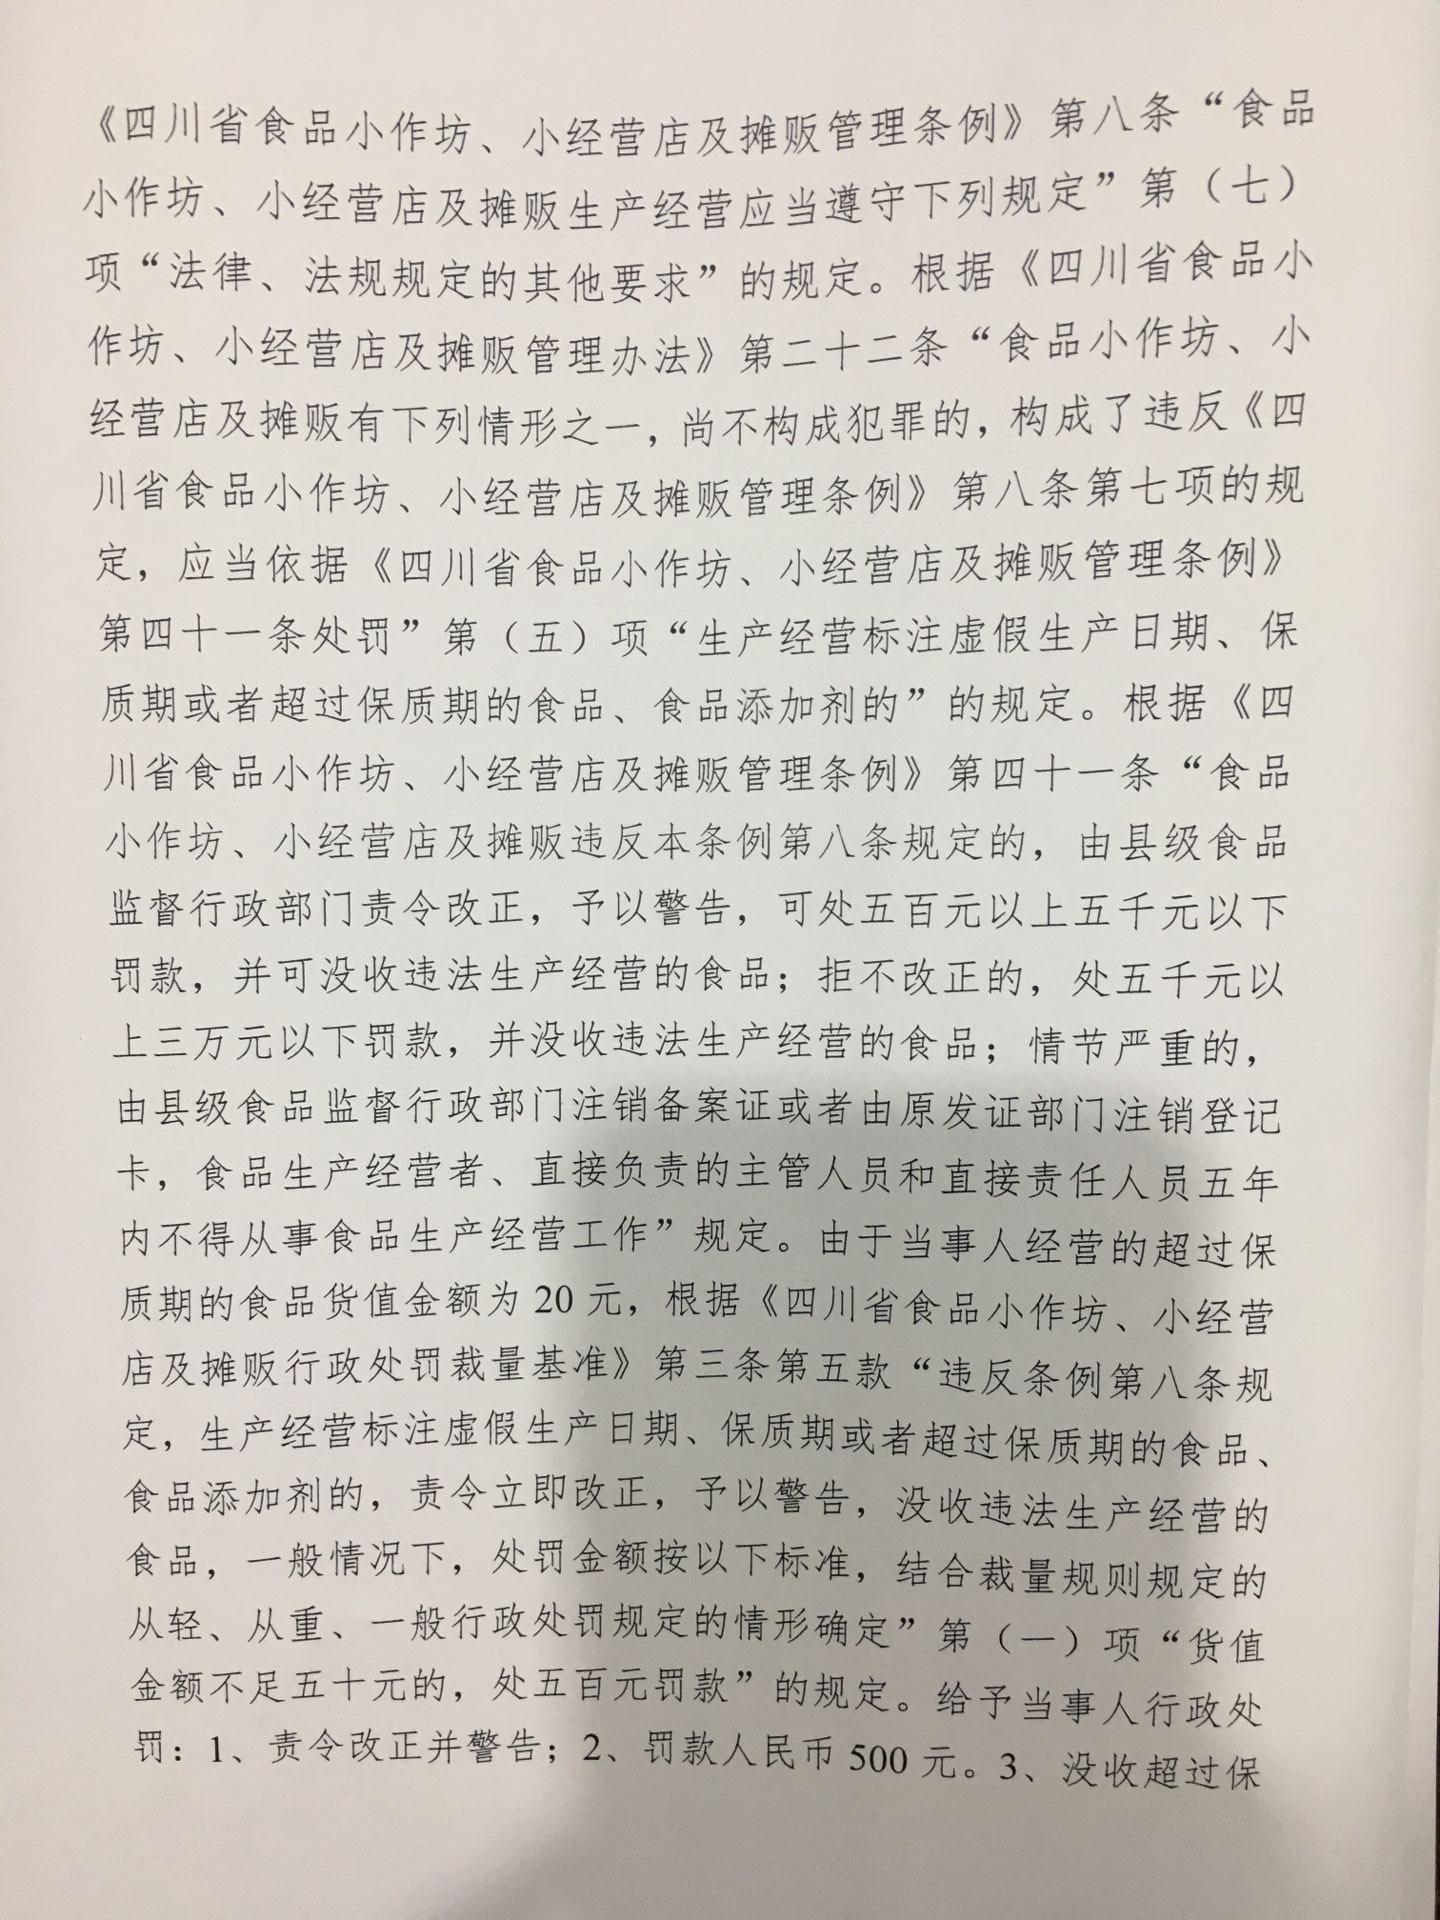 《四川省食品小作坊、小经营店及摊贩管理条例》第八条“食品
小作坊、小经营店及摊贩生产经营应当遵守下列规定”第（七）
项“法律、法规规定的其他要求”的规定。根据《四川省食品小
作坊、小经营店及摊贩管理办法》第二十二条“食品小作坊、小
经营店及摊贩有下列情形之一，尚不构成犯罪的，构成了违反《四
川省食品小作坊、小经营店及摊贩管理条例》第八条第七项的规
定，应当依据《四川省食品小作坊、小经营店及摊贩管理条例》
第四十一条处罚”第（五）项“生产经营标注虚假生产日期、保
质期或者超过保质期的食品、食品添加剂的”的规定。根据《四
川省食品小作坊、小经营店及摊贩管理条例》第四十一条“食品
小作坊、小经营店及摊贩违反本条例第八条规定的，由县级食品
监督行政部门责令改正，予以警告，可处五百元以上五千元以下
罚款，并可没收违法生产经营的食品；拒不改正的，处五千元以
上三万元以下罚款，并没收违法生产经营的食品；情节严重的，
由县级食品监督行政部门注销备案证或者由原发证部门注销登记
卡，食品生产经营者、直接负责的主管人员和直接责任人员五年
内不得从事食品生产经营工作”规定。由于当事人经营的超过保
质期的食品货值金额为20元，根据《四川省食品小作坊、小经营
店及摊贩行政处罚裁量基准》第三条第五款“违反条例第八条规
定，生产经营标注虚假生产日期、保质期或者超过保质期的食品、
食品添加剂的，责令立即改正，予以警告，没收违法生产经营的
食品，一般情况下，处罚金额按以下标准，结合裁量规则规定的
从轻、从重、一般行政处罚规定的情形确定”第（一）项“货值
金额不足五十元的，处五百元罚款”的规定。给予当事人行政处
罚：1、责令改正并警告；2、罚款人民币500元。3、没收超过保